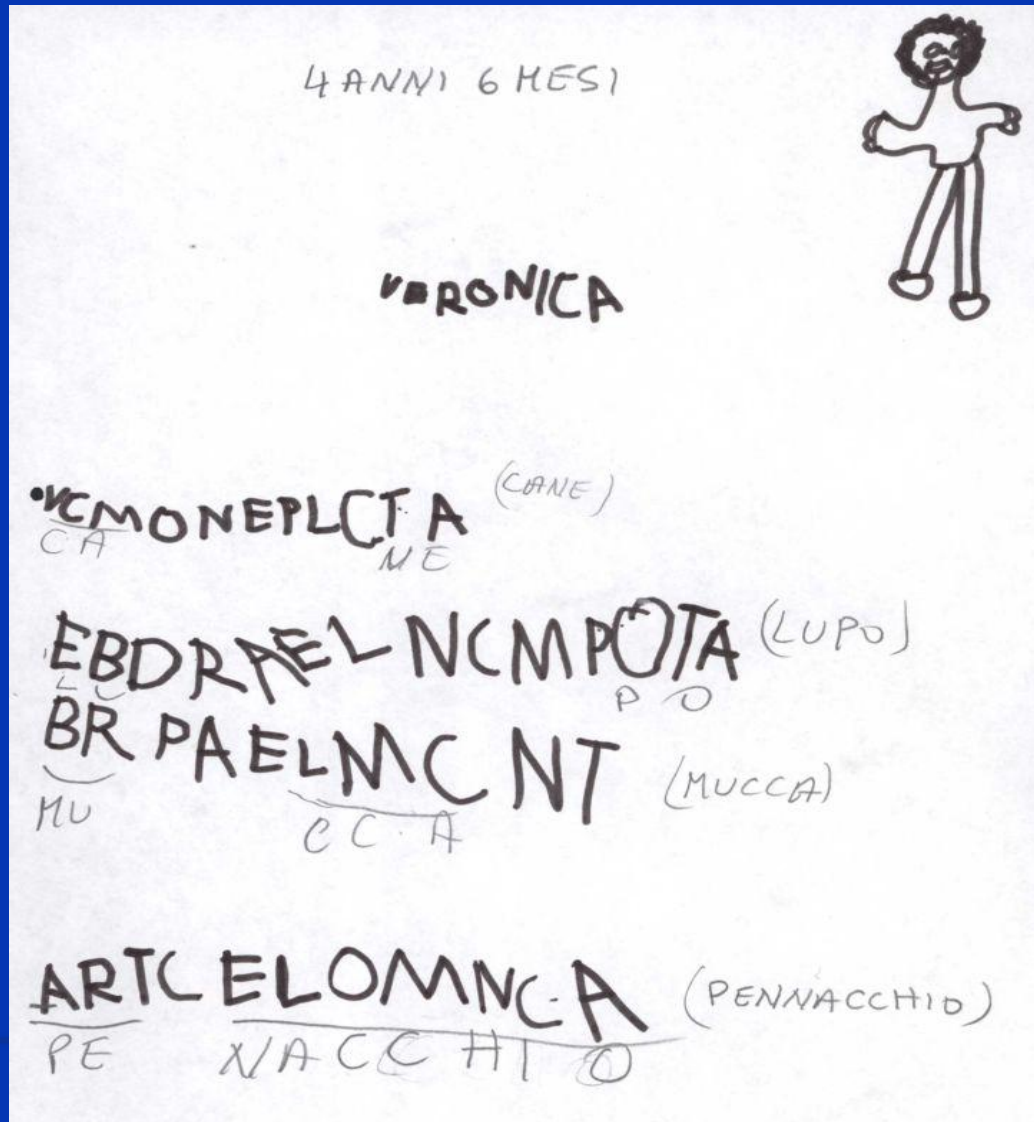 4 ANNI 6 MESI
VERONICA
VCMONEPLCTA (CANE)
CA NE
EBDRAELNCMPOTA (LUPO)
LU PO
BRPAELMCNT (MUCCA)
MU CCA
ARTCELOMNCA (PENNACCHIO)
PE NACCHIO